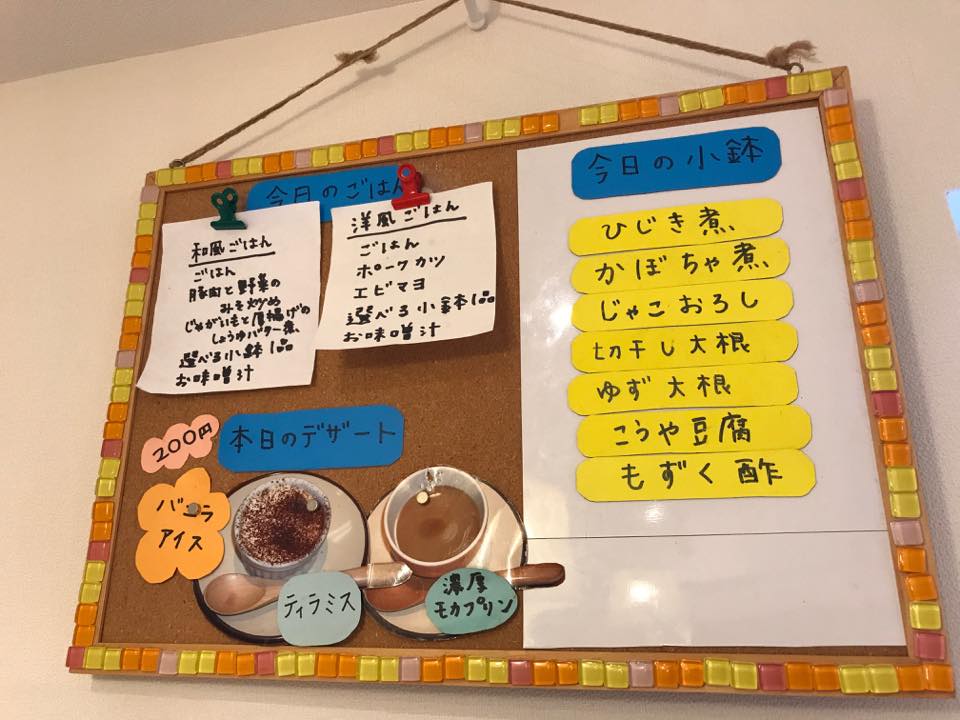 今日のごはん
和風ごはん
ごはん
豚肉と野菜の
みそ炒め
じゃがいもと厚揚げの
しょうゆバター煮
選べる小鉢1品
お味噌汁
洋風ごはん
ごはん
ポークカツ
エビマヨ
選べる小鉢1品
お味噌汁
今日の小鉢
ひじき煮
かぼちゃ煮
じゃこおろし
切干し大根
ゆず大根
こうや豆腐
もずく酢
200円
本日のデザート
バニラ
アイス
ティラミス
濃厚
モカプリン